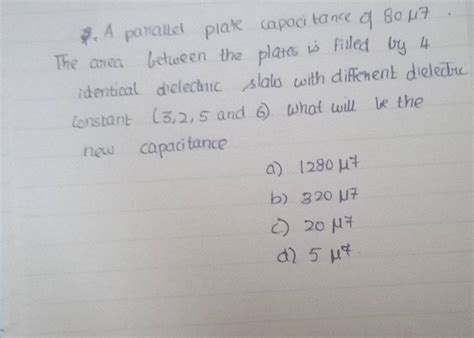 8. A parallel plate capacitance of 80 µF.
The area between the plates is filled by 4
identical dielectric slabs with different dielectric
constant (3,2,5 and 6) what will be the
new capacitance
a) 1280 µF
b) 320 µF
c) 20 µF
d) 5 µF